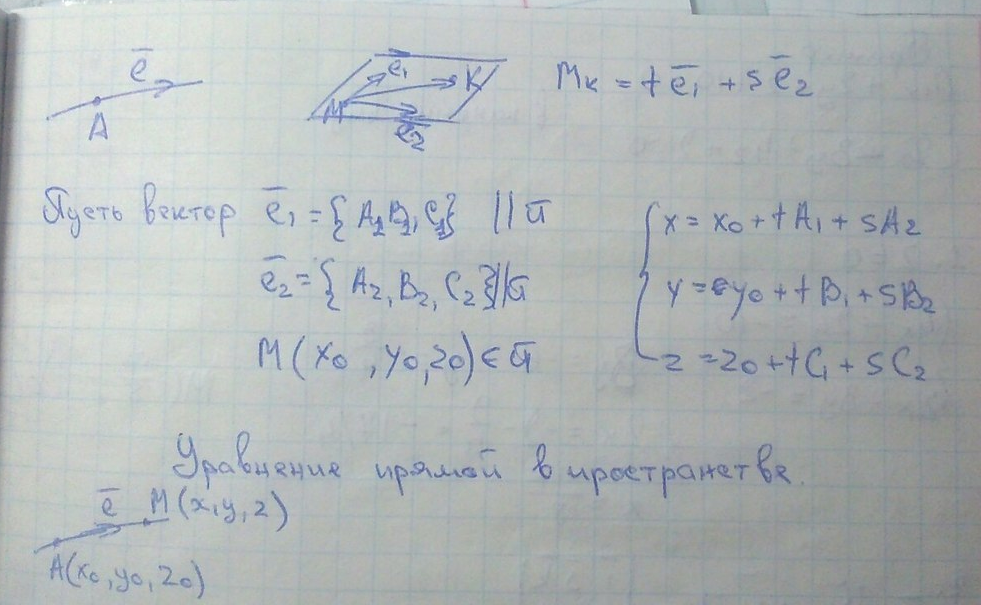 ē
A
ē₁
K
M
ē₂
Mк = tē₁ + sē₂
Пусть вектор ē₁ = {A₁, B₁, C₁} || π
ē₂ = {A₂, B₂, C₂} || π
M(x₀, y₀, z₀) ∈ π
x = x₀ + tA₁ + sA₂
y = y₀ + tB₁ + sB₂
z = z₀ + tC₁ + sC₂
Уравнение прямой в пространстве.
ē M(x, y, z)
A(x₀, y₀, z₀)